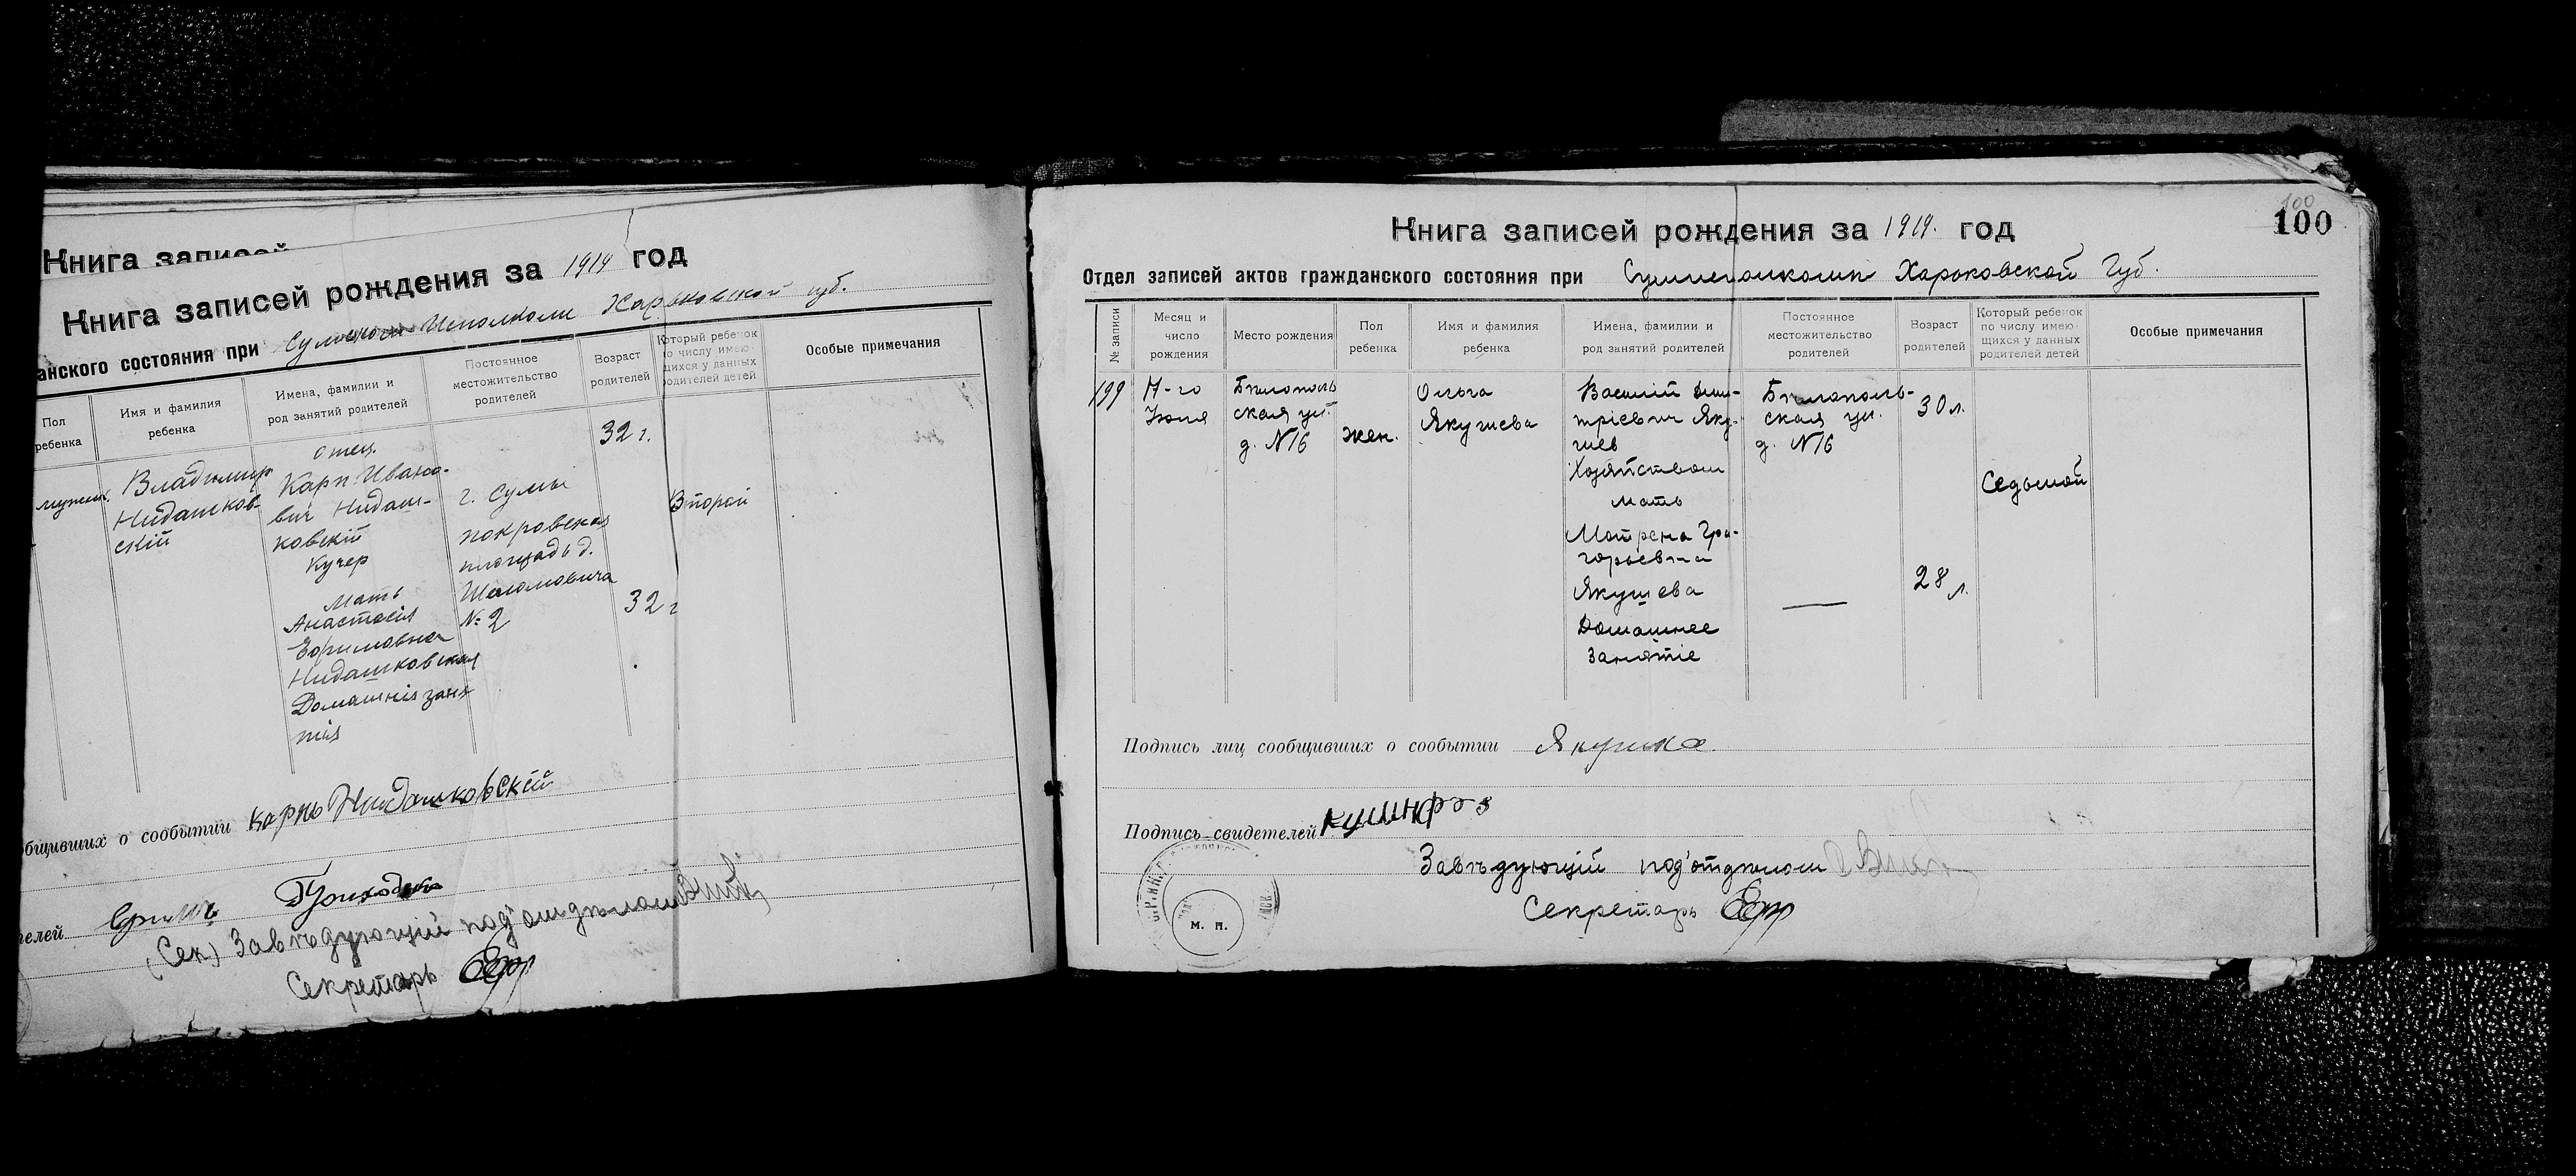 Книга записей
Книга записей рождения за 1919 год
анского состояния при Сумском Исполкоме Харьковской губ.
Пол ребенка
Имя и фамилия ребенка
Имена, фамилии и род занятий родителей
Постоянное местожительство родителей
Возраст родителей
Который ребенок по числу имеющихся у данных родителей детей
Особые примечания
мужск.
Владимир
Нидашков-
скій
отец.
Карп Ивано-
вич Нидаш-
ковскій
Кучер
Мать
Анастасія
Ефимовна
Нидашковская
Домашнія заня-
тія
г. Сумы
покровская
площадь д.
№ 2
32 г.
32 г
Второй
общивших о сообытии Карпъ Нидашковскій
телей
(Сек) Завѣдующій под'отдѣлом
Секретарь
100
100
Книга записей рождения за 1919. год
Отдел записей актов гражданского состояния при Харьковской Губ.
№ записи
Месяц и число рождения
Место рождения
Пол ребенка
Имя и фамилия ребенка
Имена, фамилии и род занятий родителей
Постоянное местожительство родителей
Возраст родителей
Который ребенок по числу имеющихся у данных родителей детей
Особые примечания
199
17-го
Ююля
Бѣлополь
ская ул.
д. №16
жен.
Ольга
Якушева
Василій Дми-
тріевич Яку-
шев
Хозяйством
мать
Матрена Гри-
горьевна
Якушева
Домашнее
Занятіе
Бѣлополь-
ская ул.
д. №16
30 л.
28 л.
Седьмой
Подпись лиц сообщивших о сообытии
Подпись свидетелей
Завѣдующій под'отдѣлом
Секретарь
М. П.